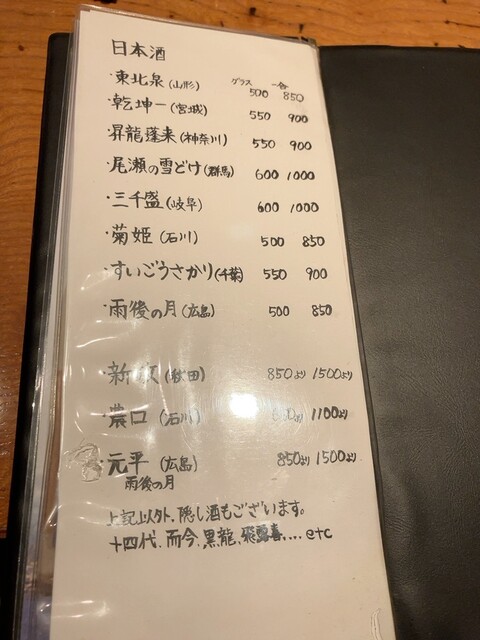 日本酒
グラス 一合
・東北泉(山形) 500 850
・乾坤一(宮城) 550 900
・昇龍蓬来(神奈川) 550 900
・尾瀬の雪どけ(群馬) 600 1000
・三千盛(岐阜) 600 1000
・菊姫(石川) 500 850
・すいごうさかり(千葉) 550 900
・雨後の月(広島) 500 850
・新政(秋田) 850より 1500より
・農口(石川) より 1100より
・元平(広島) 850より 1500より
雨後の月
上記以外、隠し酒もございます。
十四代、而今、黒龍、飛露喜.... etc